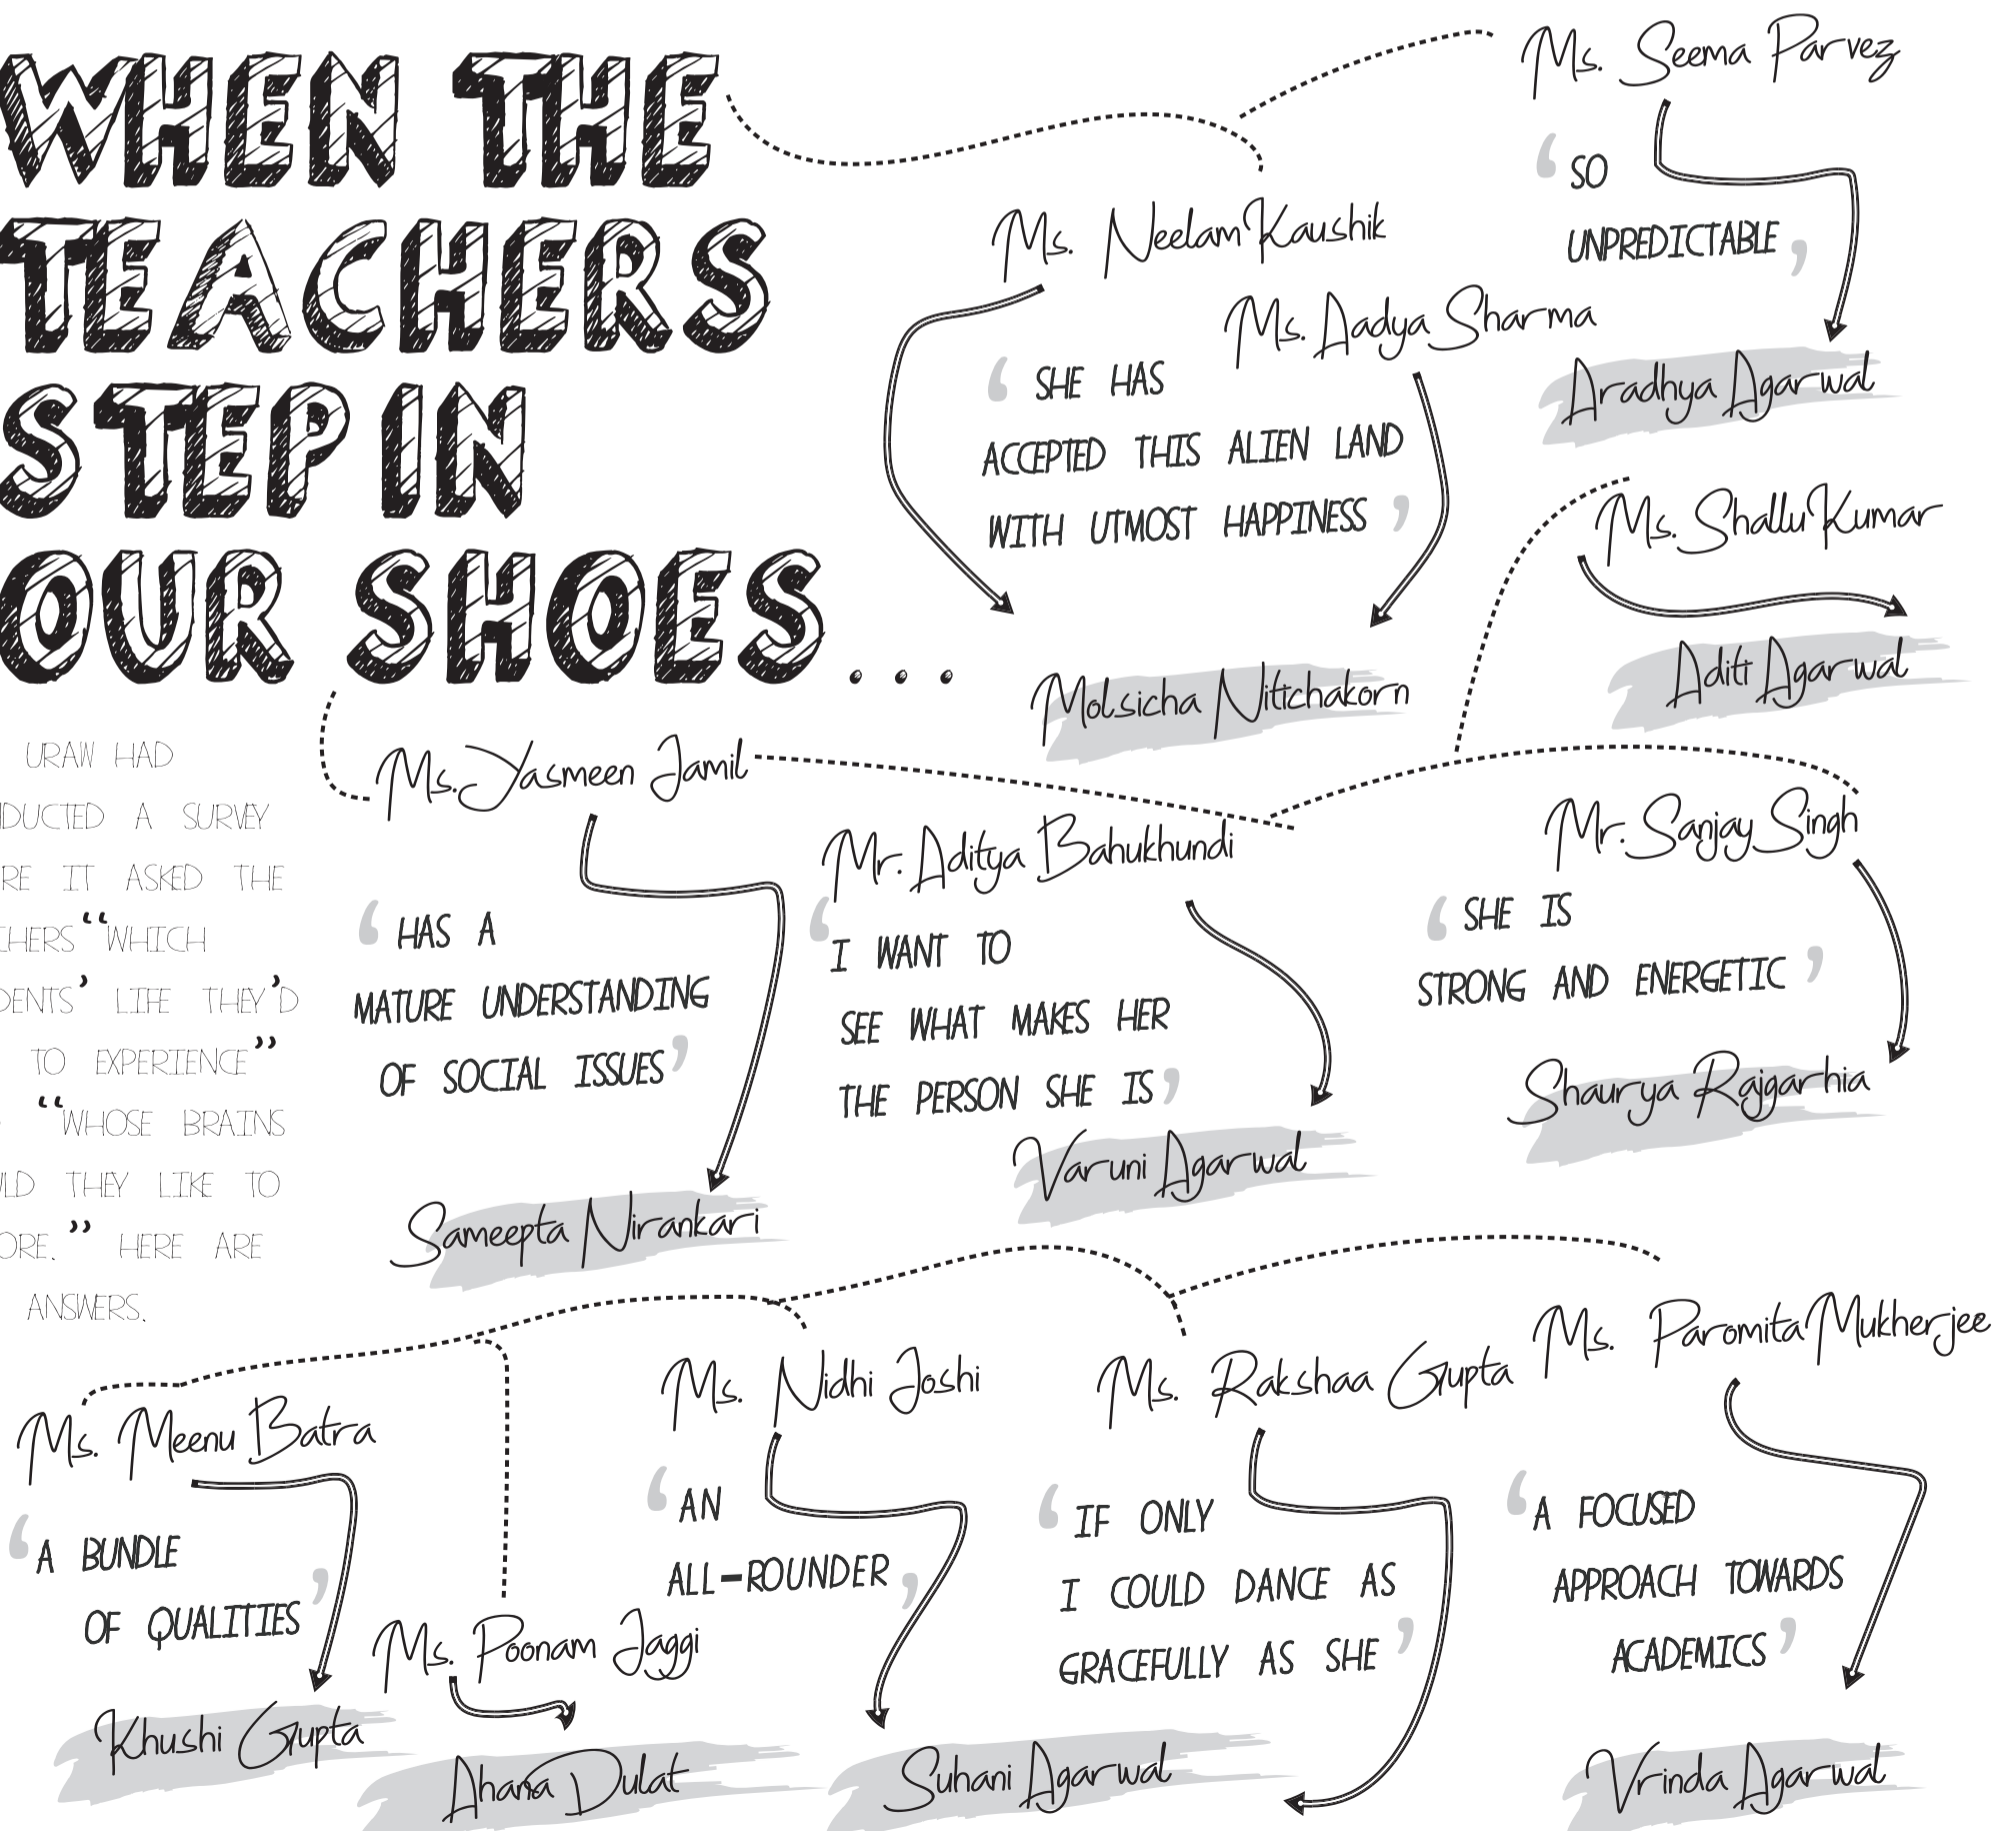 WHEN THE
TEACHERS
STEP IN
OUR SHOES...
URAW HAD
NDUCTED A SURVEY
RE IT ASKED THE
CHERS “WHICH
DENTS’ LIFE THEY’D
TO EXPERIENCE”
“WHOSE BRAINS
ULD THEY LIKE TO
ORE.” HERE ARE
ANSWERS.
Ms. Seema Parvez
‘SO
UNPREDICTABLE’
Aradhya Agarwal
Ms. Neelam Kaushik
Ms. Aadya Sharma
‘SHE HAS
ACCEPTED THIS ALIEN LAND
WITH UTMOST HAPPINESS’
Molsicha Nitichakorn
Ms. Shallu Kumar
Aditi Agarwal
Ms. Yasmeen Jamil
‘HAS A
MATURE UNDERSTANDING
OF SOCIAL ISSUES’
Sameepta Nirankari
Mr. Aditya Bahukhundi
‘I WANT TO
SEE WHAT MAKES HER
THE PERSON SHE IS’
Varuni Agarwal
Mr. Sanjay Singh
‘SHE IS
STRONG AND ENERGETIC’
Shaurya Rajgarhia
Ms. Meenu Batra
‘A BUNDLE
OF QUALITIES’
Khushi Gupta
Ms. Poonam Jaggi
Ahana Dulat
Ms. Nidhi Joshi
‘AN
ALL-ROUNDER’
Suhani Agarwal
Ms. Rakshaa Gupta
‘IF ONLY
I COULD DANCE AS
GRACEFULLY AS SHE’
Ms. Paromita Mukherjee
‘A FOCUSED
APPROACH TOWARDS
ACADEMICS’
Vrinda Agarwal